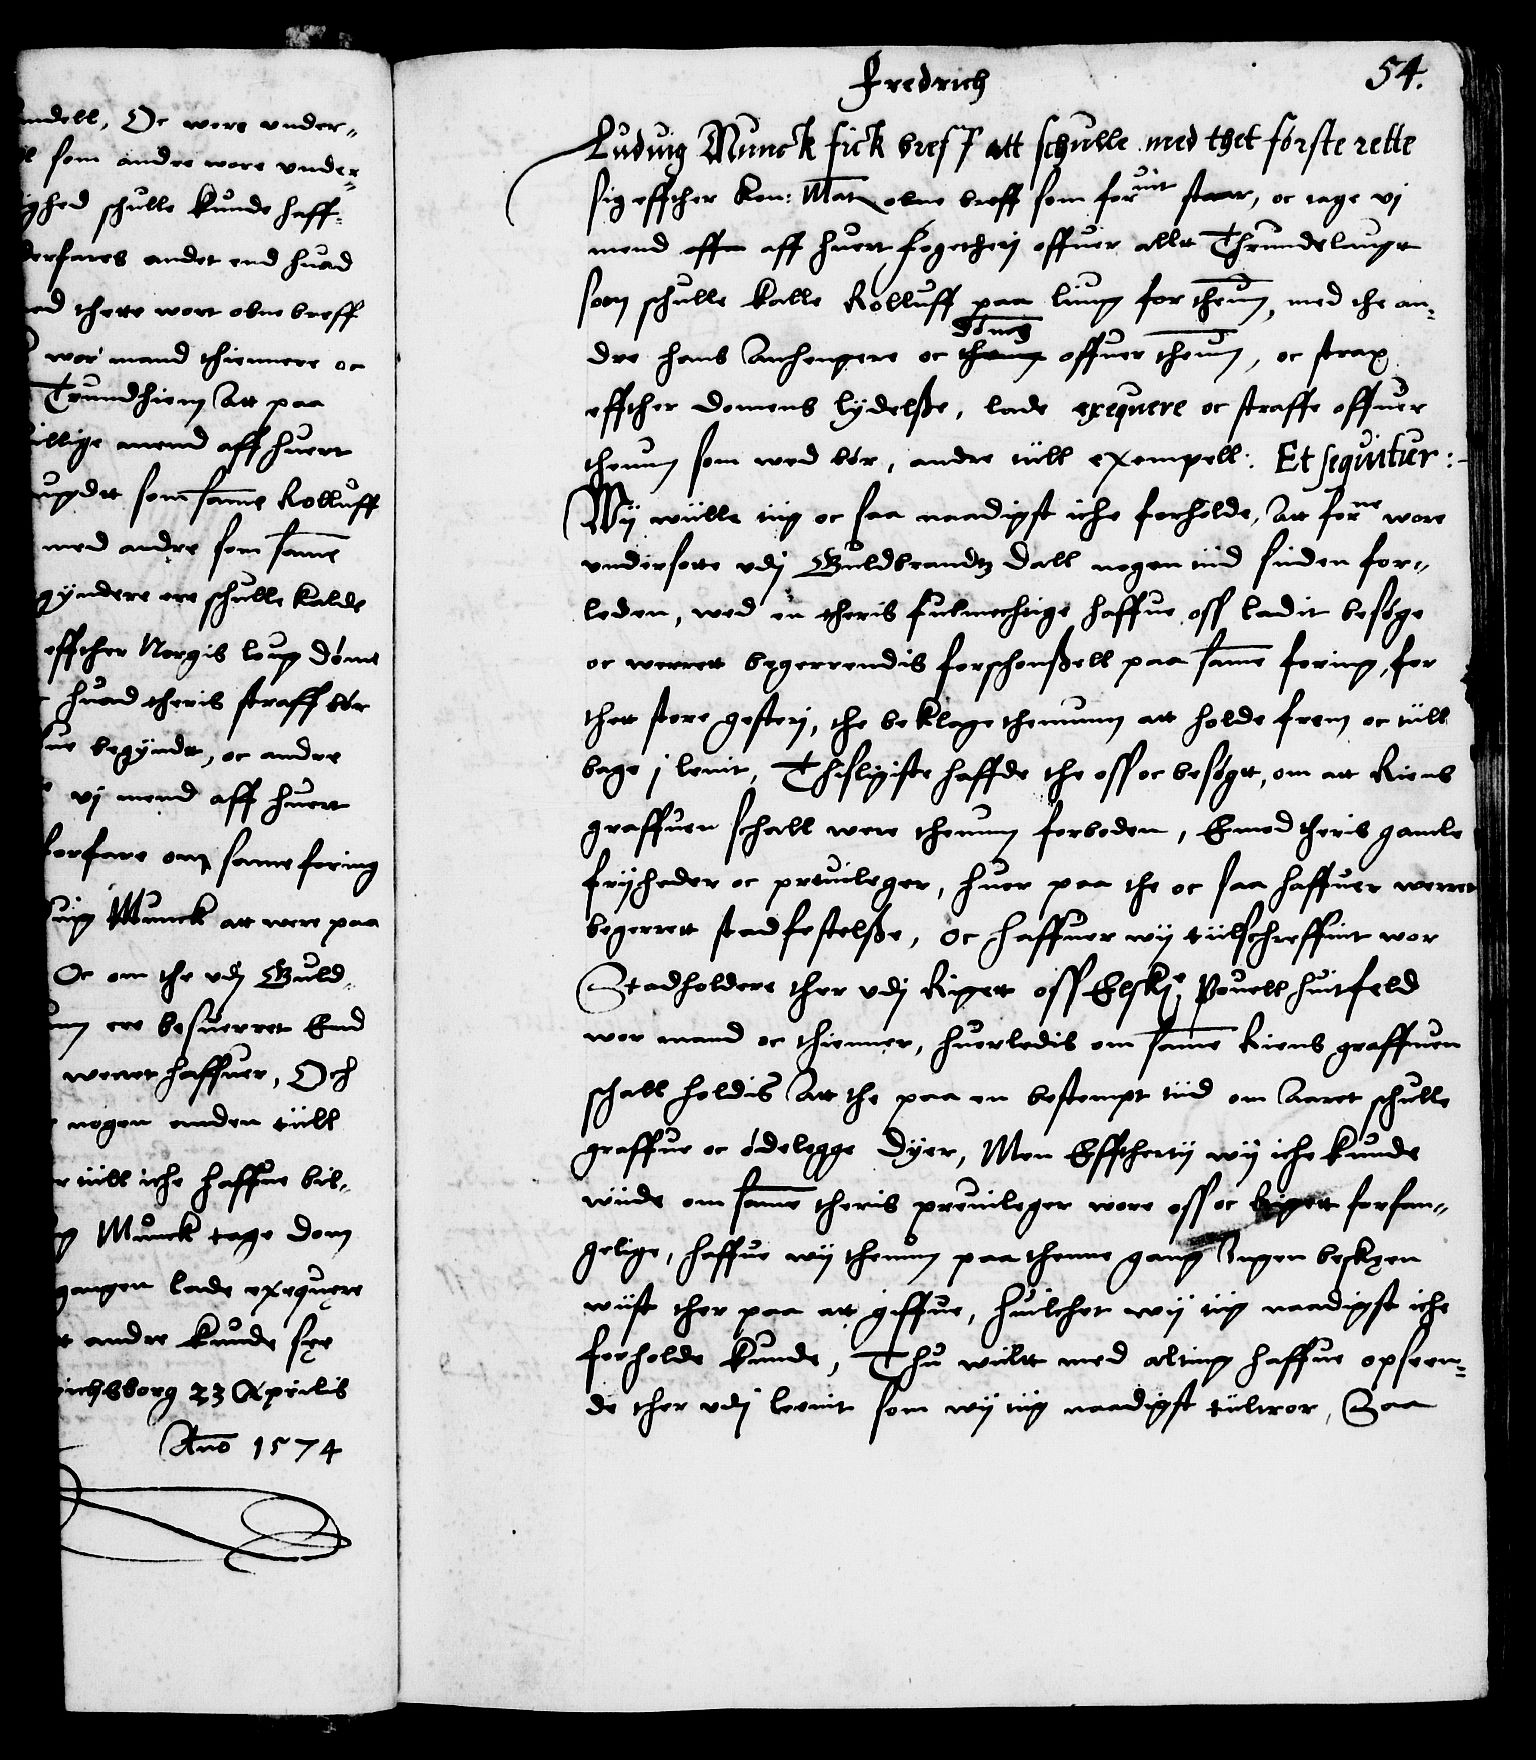 ndell, Oc wore vnder„
l som andre wore vnder„
ighed schulle kunde haff„
derfares andet end huad
ed thette wort obne breff
wor mand thiennere oc
Trundhiem Att paa
uillige mend aff huert
updtt som same Rolluff
med andre som same
gyndere ere schulle kalde
effther Norgis loug dømt
huad theris straff bør
ue begyndt, oc andre
vj mend aff huert
forfare om same foring
uig Munck att were paa
Oc om the vdj Guld„
um ere besuerret End
werret haffuer, Och
nogen anden tüll
r tüll iche haffue bil„
g Munck tage dom
gangen lade exequere
tt andre kunde see
richsborg 23 Aprilis
Ano 1574
Fredrich
54.
Luduig Munck fick breff att schulle med thet første rette
sig effther Kon: Mat obne breff som foruit staar, oc tage vj
mend aff huert fogetherj offuer allt Thrundelaugt
som schulle kalle Rolluff paa liung for theum, med the an„
dre hans Anhengere oc dømes offuer theum, oc strax
effther domens lydelße, lade exequere oc straffe offuer
thenum som wed bør, andre tüll exempell. Et sequitur:
Wij wiille tiig oc saa naadigst iche forholde, Att forne wore
vndersotte vdj Guldbrandtz dall nogen tiid siiden for„
leden, wed en theris fulmechtige haffue oss ladit besøge
oc werrett begerrendis forschonßell paa same foring, for
thett store gesterj, the beklage thenumm att holde frem oc tüll
bage j lenit, Thisligiste haffde the oss oc besøgtt, om att Riens
graffuen schall were thenum forboden, Emod theris gamle
frijheder oc preuileger, huor paa the oc saa haffuer werret
begerrett stadfestelße, Oc haffuer wij tüllschreffuit wor
Stadholdere ther vdj Rigett oss Elskl: Pouell huitfeld
wor mand oc thienner, huorledis om same Riens graffuen
schall holdis Att the paa en bestempt tiid om Aaret schulle
graffue oc ødelegge dyer, Men Efftherty wij iche kunde
wiide om same theris preuileger wore oss oc Rigett forfan„
gelige, haffue wij thenum paa thenne gang Ingen beskeen
wiist ther paa att giffue, huilchet wij tiig naadigst iche
forholde kunde, Thu wiltt med alting haffue opseen„
de ther vdj leenit som wij tiig naadigst tiiltror, Saa